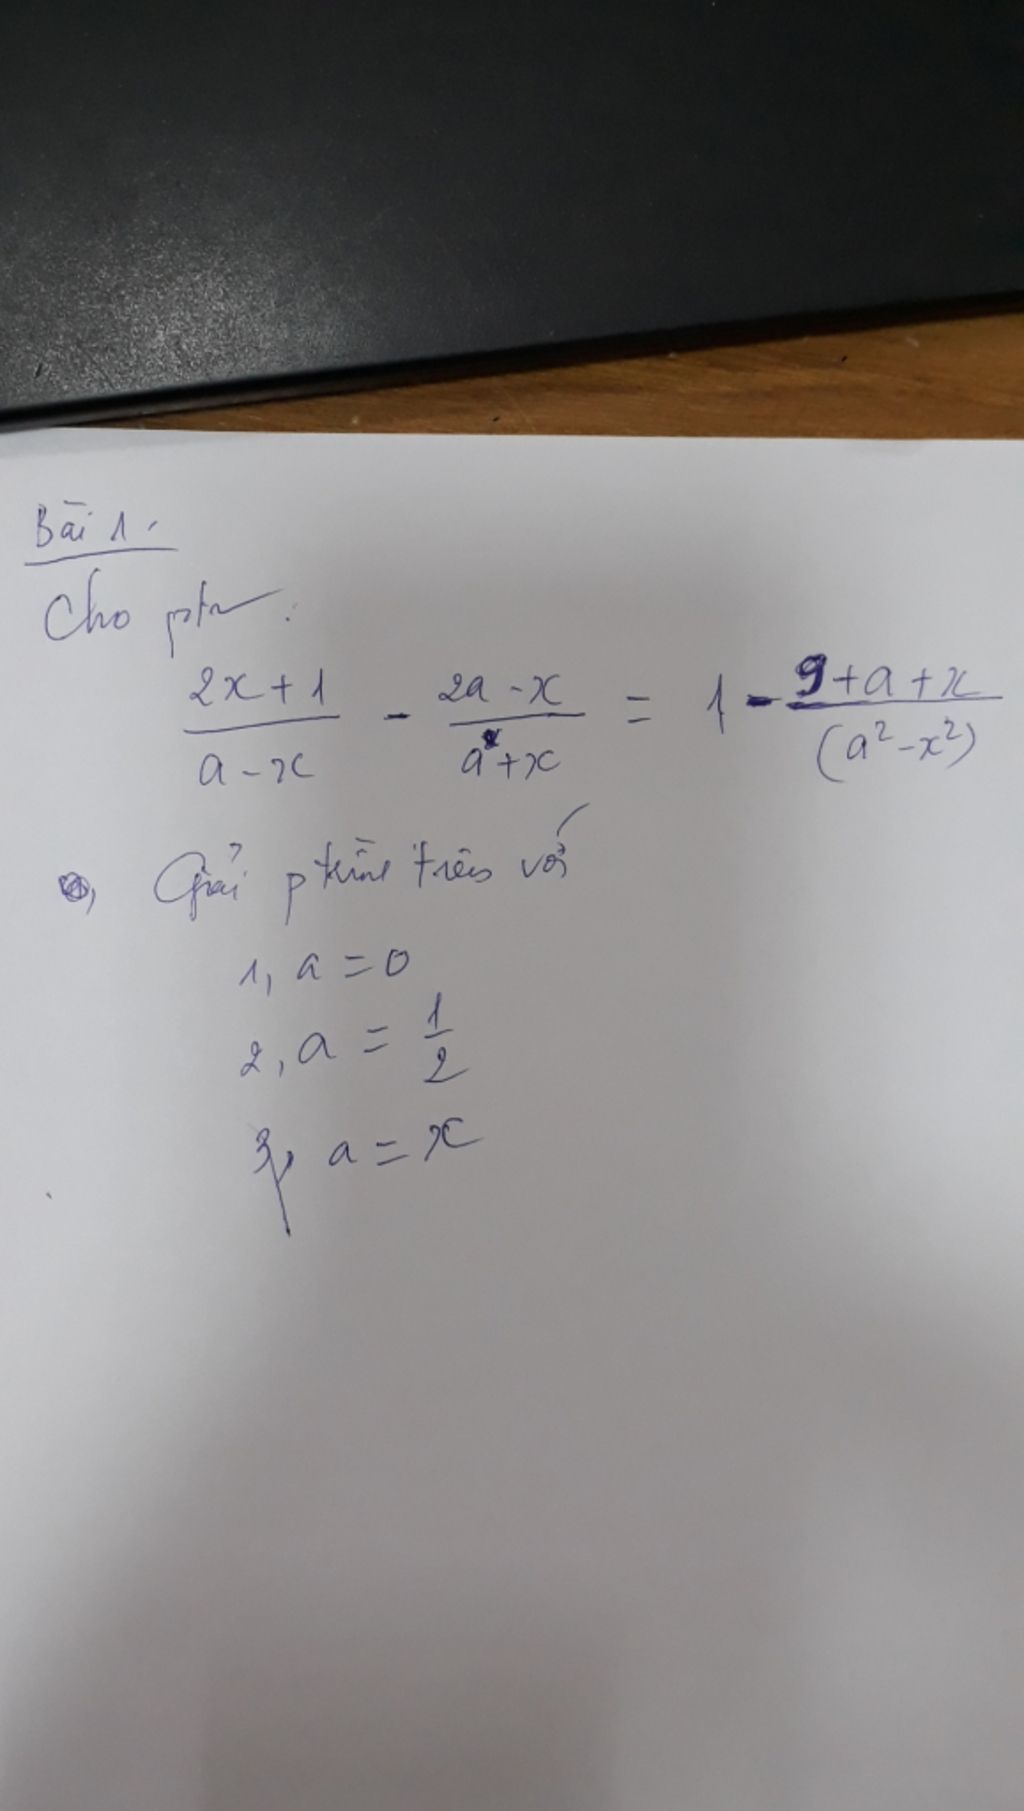 Bài 1.
Cho ptr :
(2x + 1)/(a - x) - (2a - x)/(a + x) = 1 - (9 + a + x)/(a² - x²)
Giải ptrình trên với
1, a = 0
2, a = 1/2
3, a = x